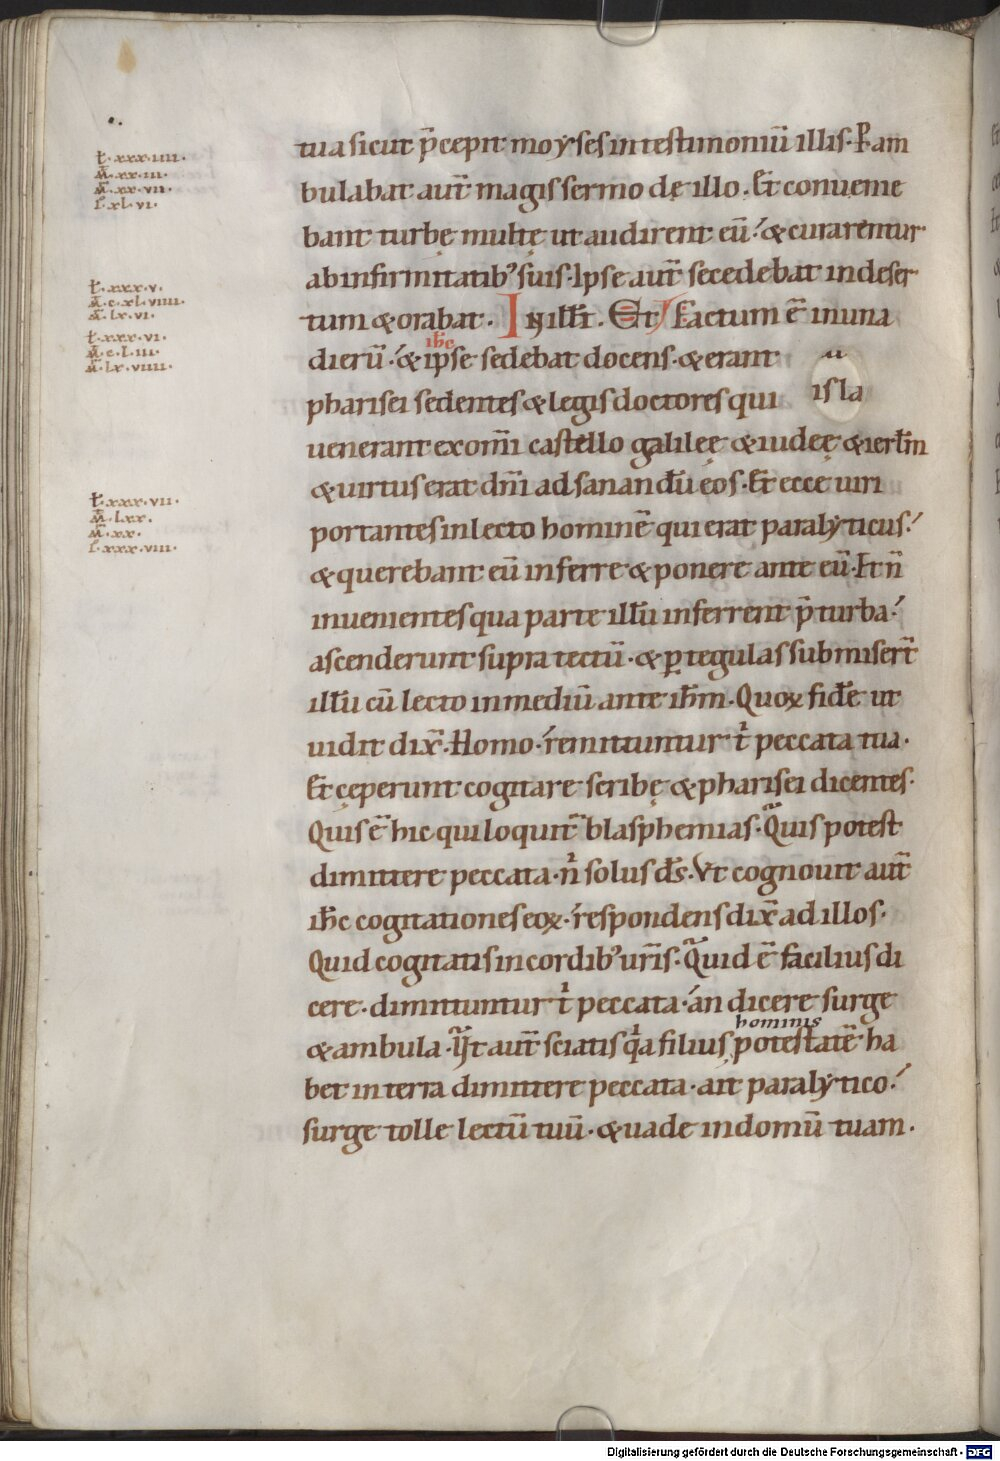 tua sicut p̄cepit moyses in testimoniū illis. Peram
bulabat aut̄ magis sermo de illo. Et conuenie
bant turbę multę ut audirent eū. & curarentur
ab infirmitatib; suis. Ipse aut̄ secedebat in deser
tum & orabat. In ill̄ t̄. Et Factum ē in una
ih̄c
dierū. & ipse sedebat docens. & erant
pharisei sedentes & legis doctores qui
isla
uenerant ex om̄i castello galileę & iudeę & ierl̄m
& uirtus erat dn̄i ad sanandū eos. Et ecce uiri
portantes in lecto hominē qui erat paralyticus.
& querebant eū inferre & ponere ante eū. Et n̄
inuenientes qua parte illū inferrent p̄ turba.
ascenderunt supra tectū. & ꝑ tegulas submiser̄t
illū cū lecto in mediū ante ih̄m. Quoꝝ fidē ut
uidit dix̄. Homo. remittuntur t peccata tua.
Et cęperunt cogitare scribę & pharisei dicentes.
Quis ē hic qui loquit̄ blasphemias. Quis potest
dimittere peccata. n solus d̄s. Vt cognouit aut̄
ih̄c cogitationes eoꝝ. respondens dix̄ ad illos.
Quid cogitatis in cordib; ur̄is. Quid ē facilius di
cere. dimittuntur t peccata. an dicere surge
hominis
& ambula. Vt aut̄ sciatis qa filius potestatē ha
bet in terra dimittere peccata. ait paralytico.
surge tolle lectū tuū. & uade in domū tuam.
ł.xxx.iiii.
m̄.xx.iii.
m̄.xx.vii.
ſ.xl.vi.
ł.xxx.v.
m̄.c.xl.viiii.
m̄.lx.vi.
ł.xxx.vi.
m̄.c.l.iii.
m̄.lx.viiii.
ł.xxx.vii.
m̄.lxx.
m̄.xx.
ſ.xxx.viii.
Digitalisierung gefördert durch die Deutsche Forschungsgemeinschaft - DFG